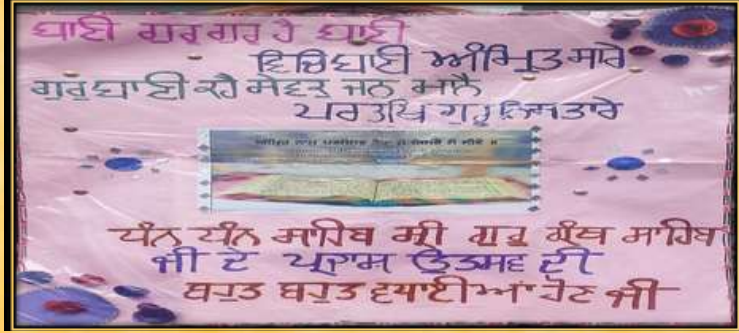 ਬਾਣੀ ਗੁਰੂ ਗੁਰੂ ਹੈ ਬਾਣੀ
ਵਿਚਿ ਬਾਣੀ ਅੰਮ੍ਰਿਤ ਸਾਰੇ
ਗੁਰ ਬਾਣੀ ਕਹੈ ਸੇਵਕ ਜਨ ਮਾਨੈ
ਪਰਤਖਿ ਗੁਰੂ ਨਿਸਤਾਰੇ
ਧੰਨ ਧੰਨ ਸਾਹਿਬ ਸ੍ਰੀ ਗੁਰੂ ਗ੍ਰੰਥ ਸਾਹਿਬ
ਜੀ ਦੇ ਪ੍ਰਕਾਸ਼ ਉਤਸਵ ਦੀ
ਬਹੁਤ ਬਹੁਤ ਵਧਾਈਆਂ ਹੋਣ ਜੀ